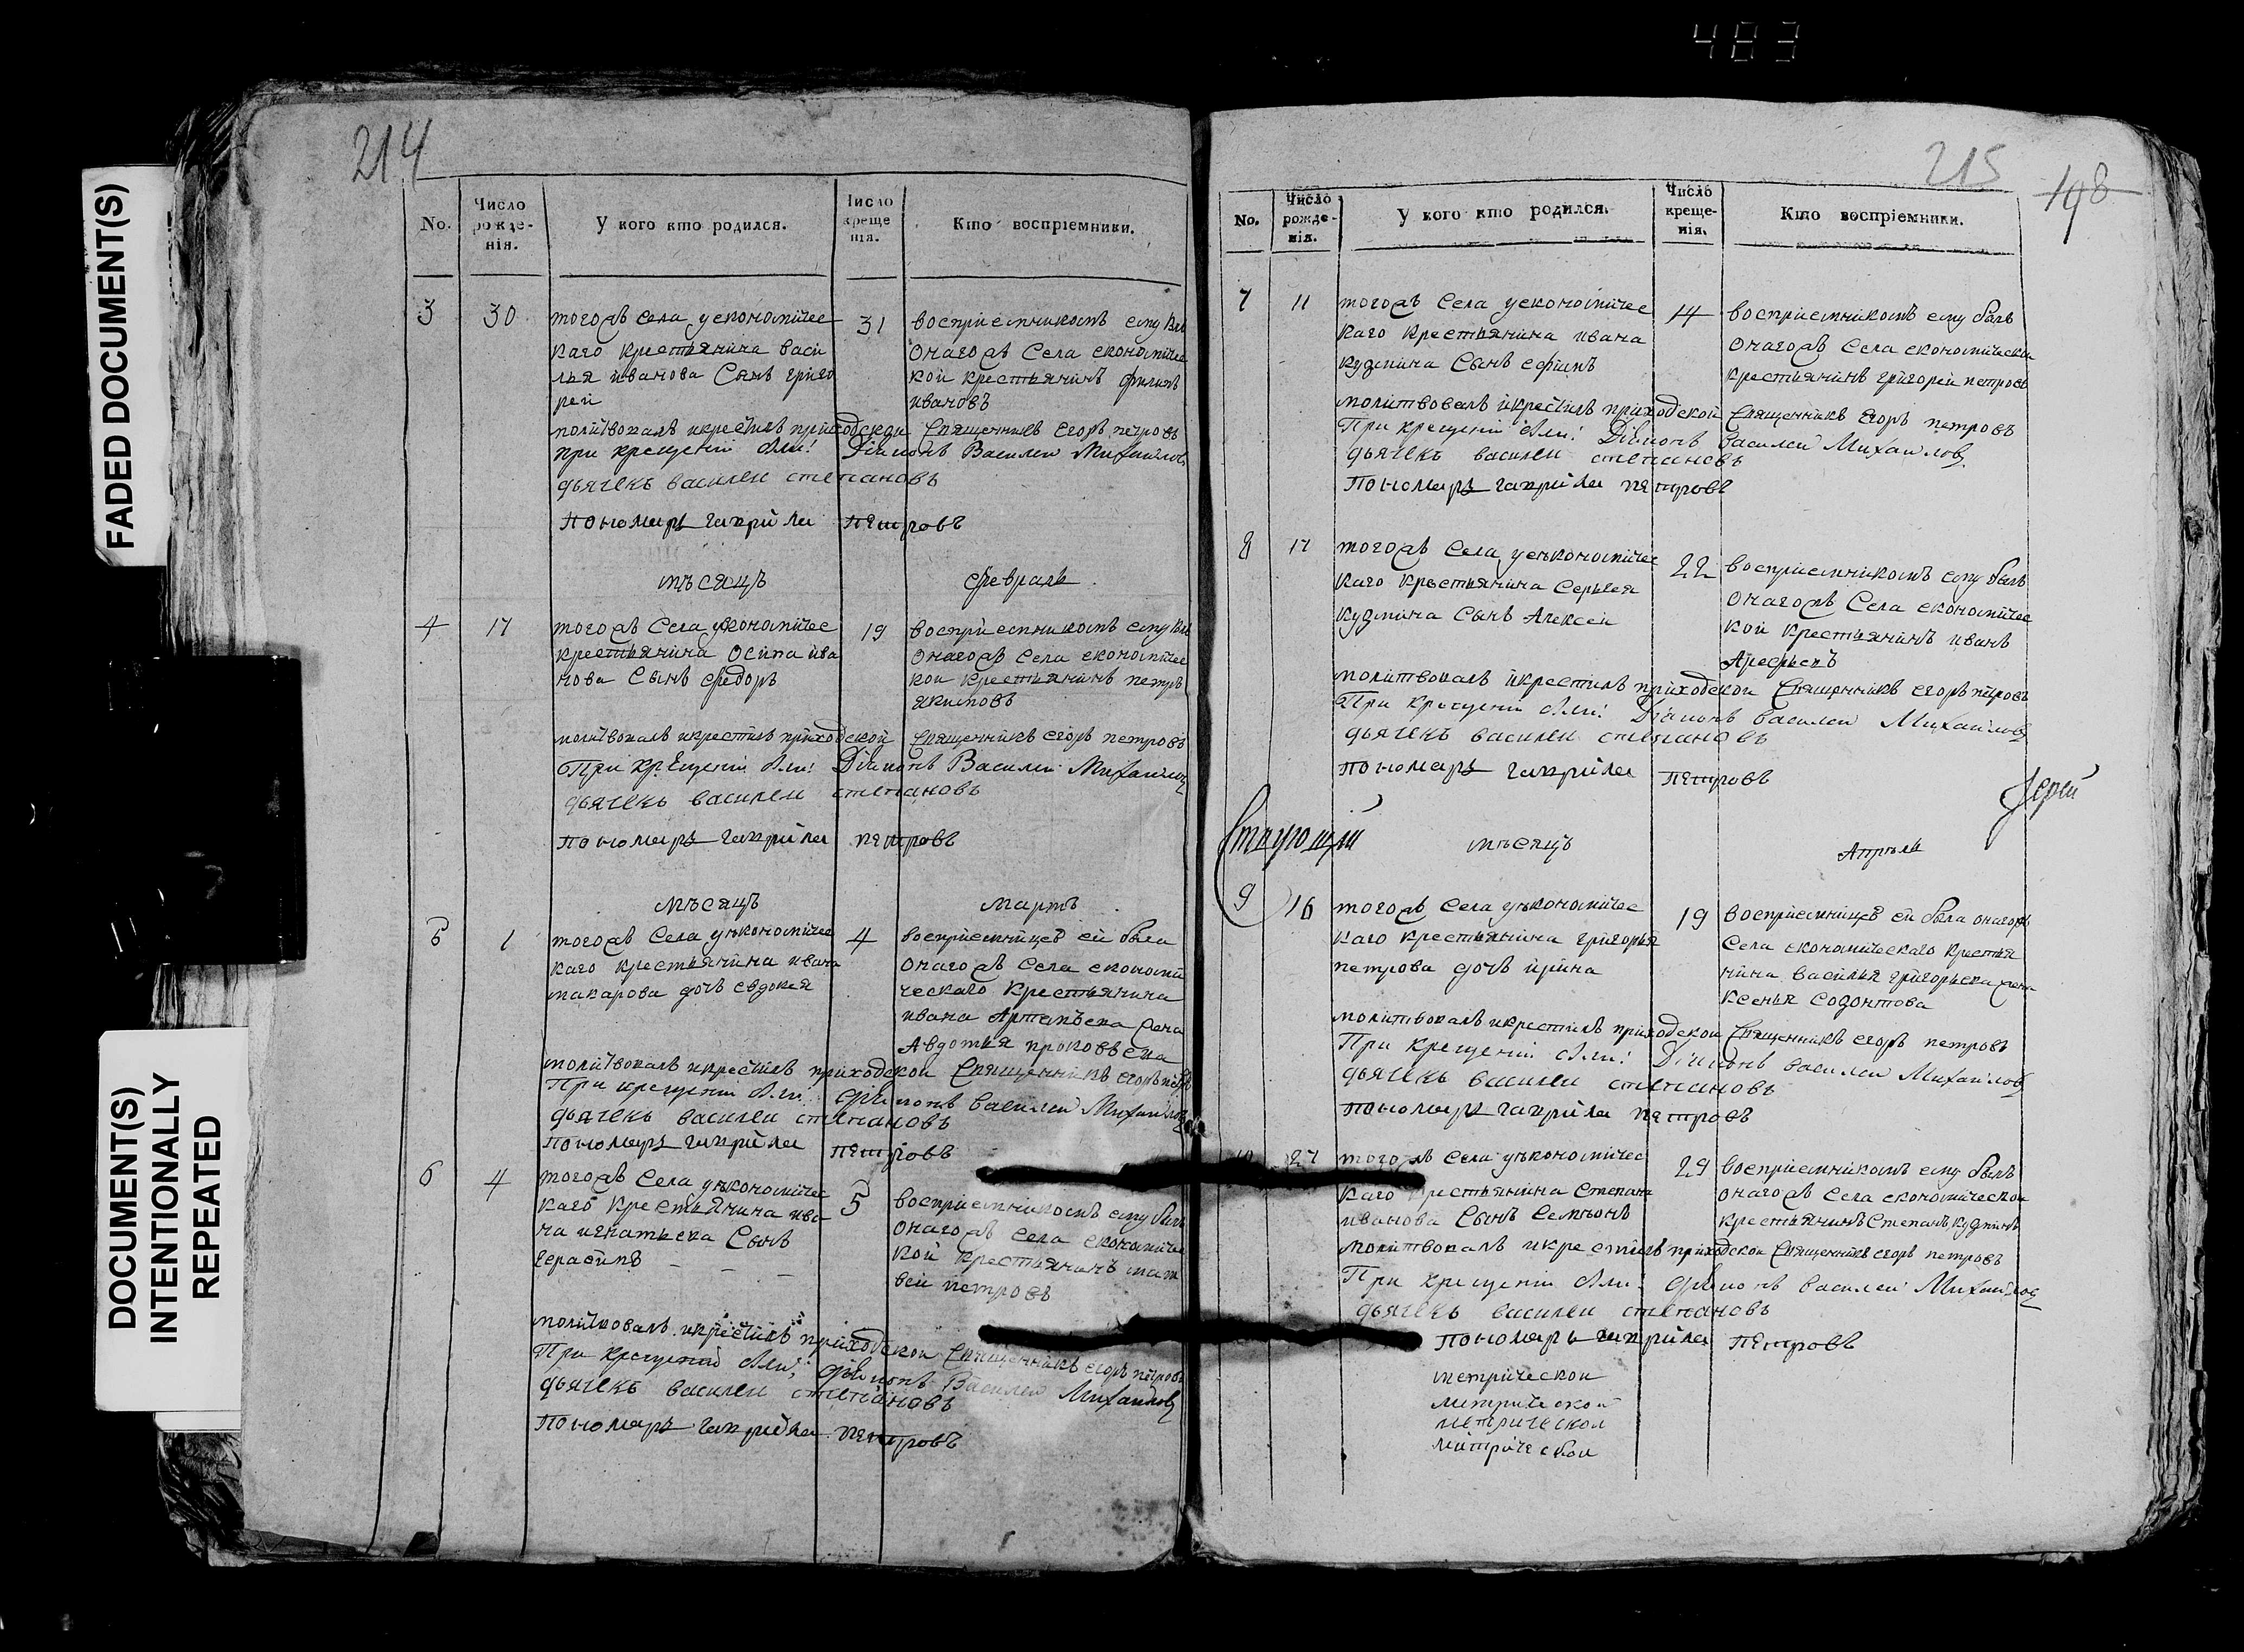 483
FADED DOCUMENT(S)
DOCUMENT(S)
INTENTIONALLY
REPEATED
214
No.
Число рожде-нія.
У кого кто родился.
Число креще нія.
Кто воспріемники.
3 30
31
тогожъ села уекономичес
каго крестьянина васи
лья иванова сынъ григо
рей
восприемникомъ ему былъ
онагожъ села економичес
кой крестьянинъ филипъ
ивановъ
молитвовалъ икрестилъ приходской священникъ егоръ петровъ
при крещеніи были: Діаконъ Василеи Михаиловъ
дьячекъ василеи степановъ
Пономарь гаврила петровъ
мѣсяцъ февраль
4 17
19
тогожъ села уекономичес
крестьянина осипа ива
нова сынъ федоръ
восприемникомъ ему былъ
онагожъ села економичес
кои крестьянинъ петръ
якимовъ
молитвовалъ икрестилъ приходской священникъ егоръ петровъ
При крещеніи были: Діаконъ Василеи Михаиловъ
дьячекъ василеи степановъ
Пономарь гаврила петровъ
мѣсяцъ мартъ
5 1
4
тогожъ села уѣкономичес
каго крестьянина ивана
макарова дочь евдокея
восприемницею ей была
онагожъ села економи
ческаго крестьянина
ивана Артемьева жена
Авдотья прокофьева
молитвовалъ икрестилъ приходской священникъ егоръ петровъ
При крещеніи были діаконъ василеи Михаиловъ
дьячекъ василеи степановъ
Пономарь гаврила петровъ
6 4
5
тогожъ села уѣкономичес
каго крестьянина ива
на игнатьева сынъ
герасимъ – – –
восприемникомъ ему былъ
онагожъ села економичес
кой крестьянинъ мат
вей петровъ
молитвовалъ икрестилъ приходской священникъ егоръ петровъ
При крещеніи были: діаконъ Василеи Михаиловъ
дьячекъ василеи степановъ
Пономарь гаврила петровъ
215
198
No.
Число рожде-нія.
У кого кто родился.
Число креще-нія.
Кто воспріемники.
7 11
14
тогожъ села уекономичес
каго крестьянина ивана
кузмина сынъ ефимъ
восприемникомъ ему былъ
онагожъ села економическои
крестьянинъ григореи петровъ
молитвовалъ икрестилъ приходской священникъ егоръ петровъ
При крещеніи были: Діаконъ василеи Михаиловъ
дьячекъ василеи степановъ
Пономарь гаврила петровъ
8 17
22
тогожъ села уекономичес
каго крестьянина сергея
кузмина сынъ Алексеи
восприемникомъ ему былъ
онагожъ села економичес
кой крестьянинъ иванъ
молитвовалъ икрестилъ приходской священникъ егоръ петровъ
При крещеніи были: Діаконъ василеи Михаиловъ
дьячекъ василеи степановъ
Пономарь гаврила петровъ
Іерей
мѣсяцъ Апрѣль
9 16
19
тогожъ села уѣкономичес
каго крестьянина григорья
петрова дочь ирина
восприемницею ей была онагожъ
села економическаго крестья
нина василья григорьева жена
ксенья
молитвовалъ икрестилъ приходской священникъ егоръ петровъ
При крещеніи были: Діаконъ василеи Михаиловъ
дьячекъ василеи степановъ
Пономарь гаврила петровъ
27
29
тогожъ села уѣкономичес
каго крестьянина степана
иванова сынъ семионъ
восприемникомъ ему былъ
онагожъ села економическои
крестьянинъ степанъ кузминъ
молитвовалъ икрестилъ приходскои священникъ егоръ петровъ
При крещеніи были: діаконъ василеи Михаиловъ
дьячекъ василеи степановъ
Пономарь гаврила петровъ
метрическои
метрической
метрической
метрическои